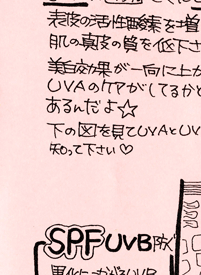 表皮の活性酸素を増
肌の真皮の質を低下さ
美白効果が一向に上か
UVAのケアがしてるかと
あるんだよ☆
下の図を見てUVAとUV
知って下さい♡
SPF UVB防